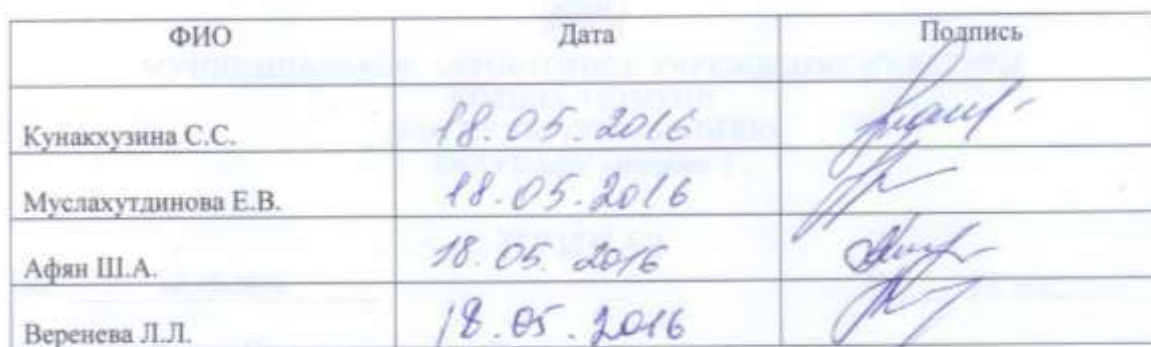 ФИО Дата Подпись
Кунакхузина С.С. 18.05.2016
Муслахутдинова Е.В. 18.05.2016
Афян Ш.А. 18.05.2016
Веренева Л.Л. 18.05.2016